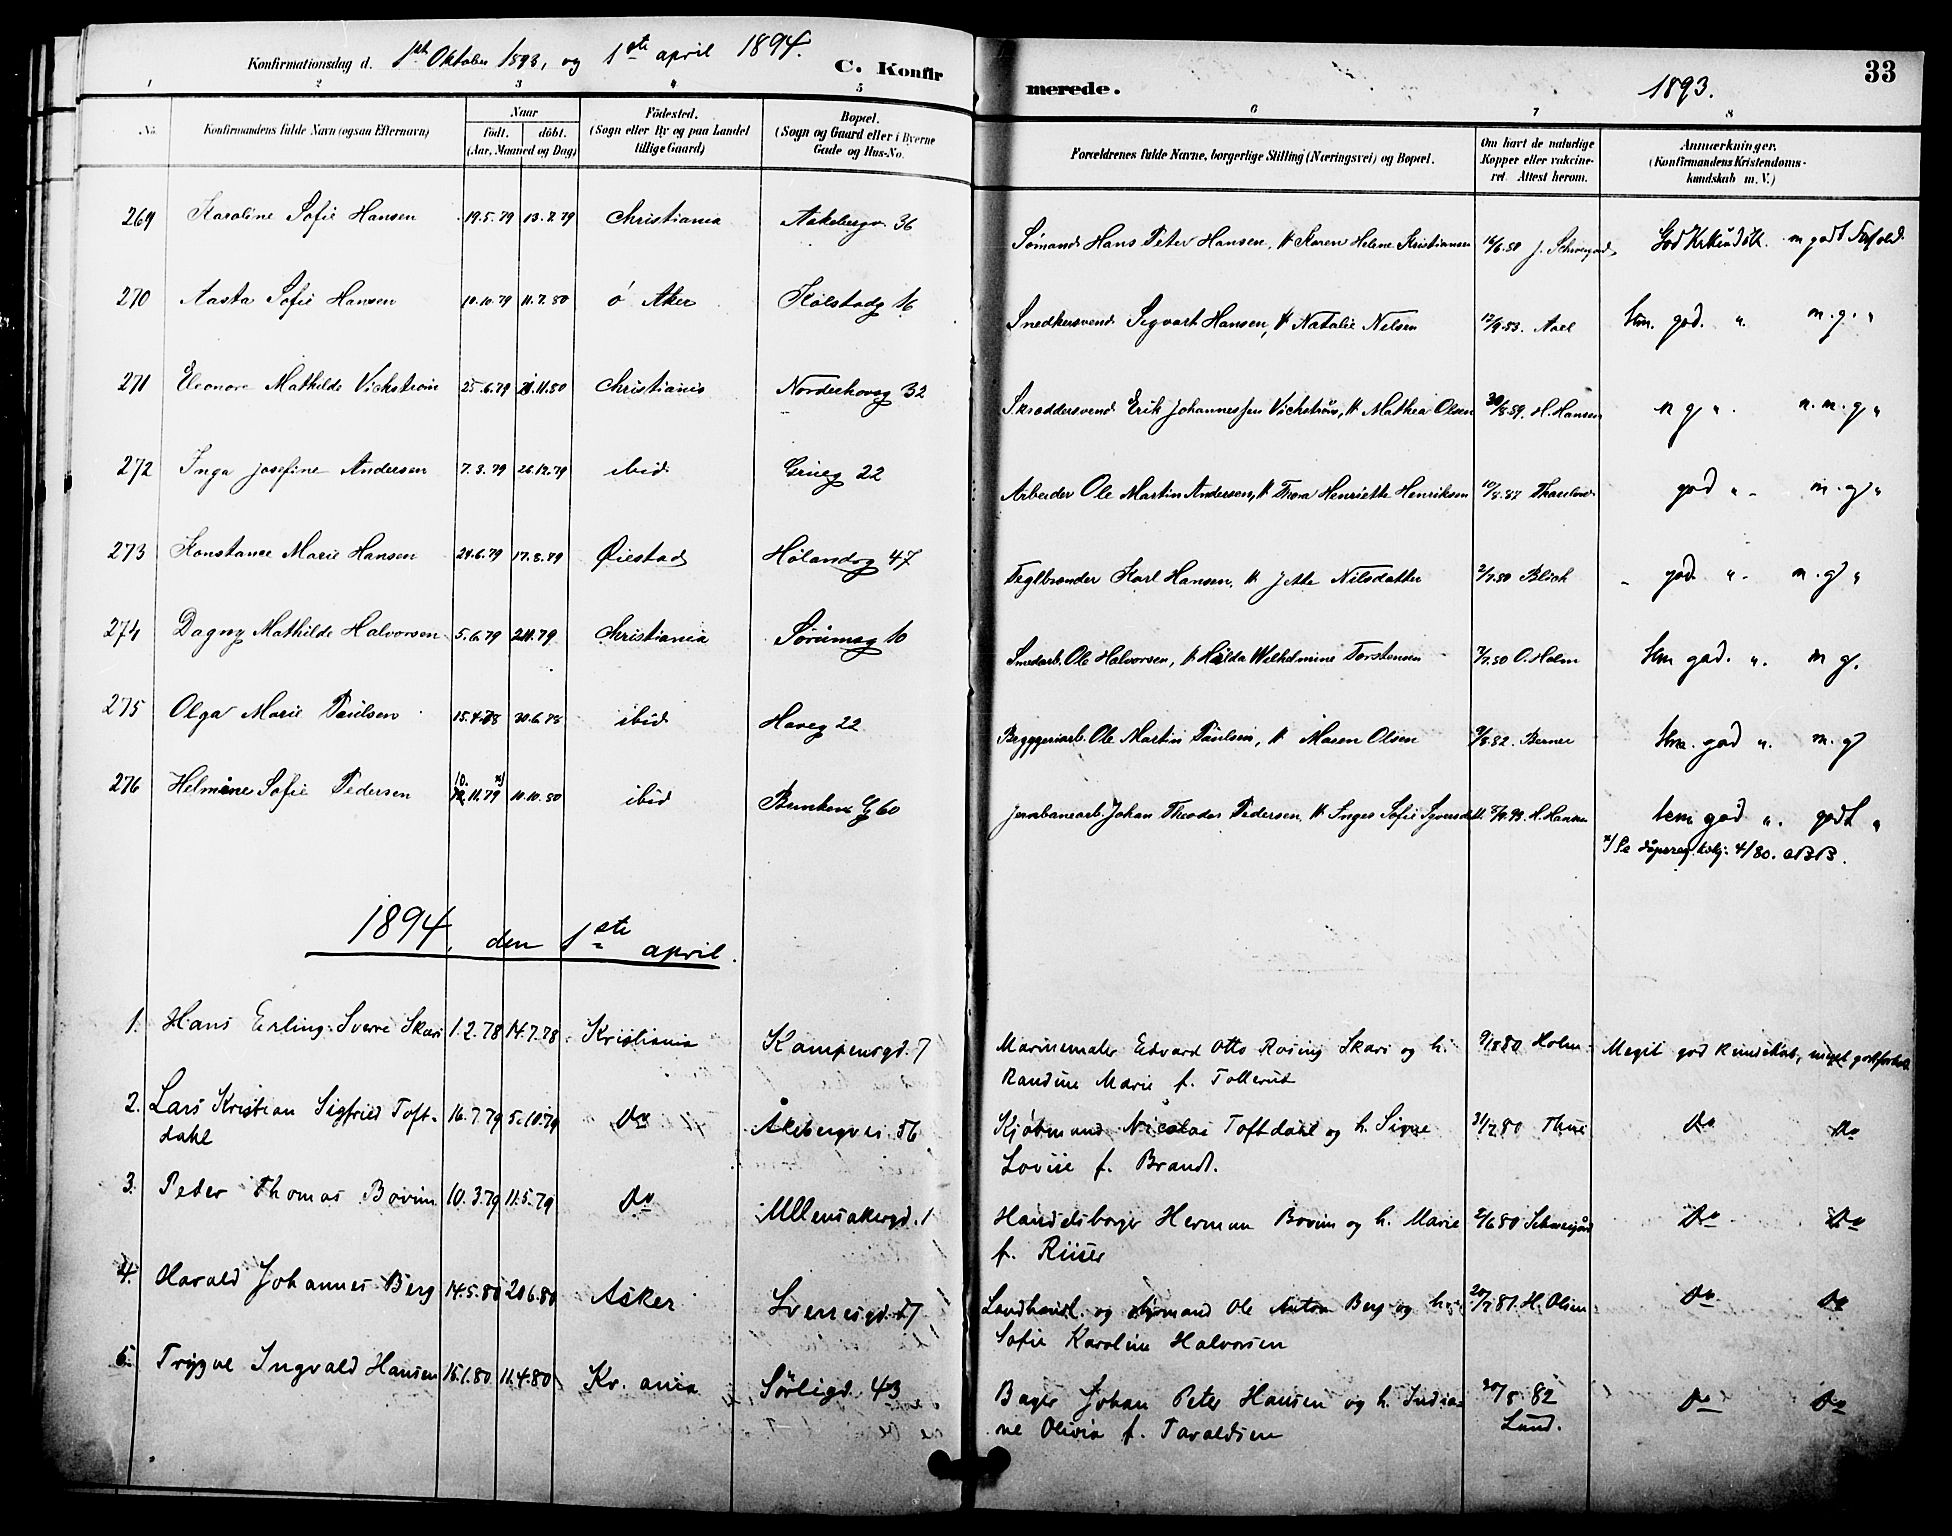 Konfirmationsdag d. 1ste Oktober 1893, og 1ste april 1894. C. Konfir
merede. 1893. 33
1 2 3 4 5
6 7 8
No. Konfirmandens fulde Navn (ogsaa Efternavn) Naar födt. döbt. (Aar, Maaned og Dag) Födested. (Sogn eller By og paa Landet tillige Gaard) Bopæl. (Sogn og Gaard eller i Byerne Gade og Hus-No.
Forældrenes fulde Navne, borgerlige Stilling (Næringsvei) og Bopæl. Om havt de naturlige Kopper eller vakcineret. Attest herom. Anmærkninger. (Konfirmandens Kristendomskundskab m. V.)
269 Karoline Sofie Hansen 19.5.79 13.7.79 Christiania Aakebergv 36 Sømand Hans Peter Hansen, & Karen Helene Kristiansen
270 Aasta Sofie Hansen 10.10.79 11.7.80 Ø Aker Kolstadg 16 Snedkersvend Sigvart Hansen, & Natalie Nelsen god. " m.g. "
271 Eleonore Mathilde Vickstrøm 25.6.79 Christiania Norderhovsg 32 Skræddersvend Erik Johannessen Vickstrøm, & Mathea Olsen H. Hansen m g " m. g "
272 Inga Josefine Andersen 7.3.79 26.12.79 ibid Grueg 22 Arbeider Ole Martin Andersen, & Thora Henriette Henriksen god " m. g "
273 Konstance Marie Hansen 21.6.79 17.8.79 Øiestad Hølandsg 47 Teglbrænder Karl Hansen, & Jette Nilsdatter 2/7.80 Blich god " m. g "
274 Dagny Mathilde Halvorsen 5.6.79 Christiania Sørumsg 10 Smedarb. Ole Halvorsen, & Hilda Wilhelmine Torstensen 7/7.80 O. Holm tem god. " m g.
275 Olga Marie Paulsen 15.4.78 30.6.78 ibid Haveg 22 Bryggeriarb. Ole Martin Paulsen, & Maren Olsen 9/8.82 Berner tem. god " m. g
276 Helmine Sofie Pedersen 10.11.79 x) 11.10.80 ibid Munkeng 60 Jernbanearb. Johan Theodor Pedersen, & Inger Sofie Syversdtt H. Hansen tem god ". godt "
x) Se dåpsreg. 4/80.
1894, den 1ste april.
1. Hans Erling Sverre Skari 1.2.78 14.7.78 Kristiania Kampensgd. 7 Marinemaler Edvard Otto Rosing Skari og h. 9/8 80 Holm Meget god kundskab, meget godt forhold
Randine Marie f. Tollerud
2. Lars Kristian Sigfried Toft- 16.7.79 5.10.79 Do Åkebergvei 56 Kjøbmand Nicolai Toftdahl og h. Signe 31/7 80 Thue Do Do
dahl Lovise f. Brandt.
3. Peder Thomas Bovim 10.3.79 11.5.79 Do Ullensakergd. 1 Handelsborger Herman Bovim og h. Marie 2/6 80 Schweigård Do Do
f. Riiser
4. Harald Johannes Berg 14.5.80 20.6.80 Asker Sverresgd. 17 Landhandl. og Ole Anton Berg og h. 20/7 81. H. Olsen Do Do
Sofie Karoline Halvorsen
5. Trygve Ingvald Hansen 15.1.80 11.4.80 Kr. ania Sörligd. 43 Bager Johan Peter Hansen og h. India- 20/8 82 Do Do
ne Olivia f. Taraldsen Lund.